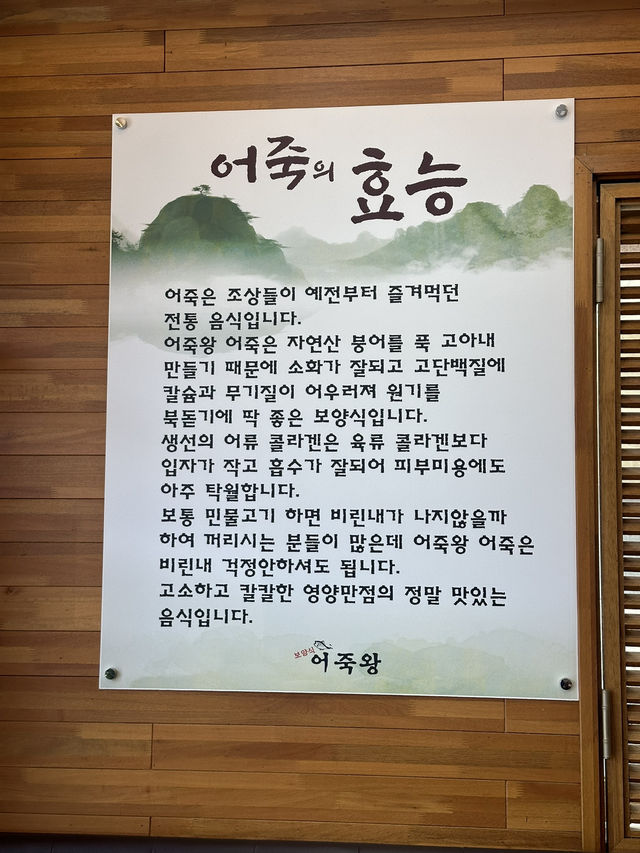 어죽의 효능
어죽은 조상들이 예전부터 즐겨먹던
전통 음식입니다.
어죽왕 어죽은 자연산 붕어를 푹 고아내
만들기 때문에 소화가 잘되고 고단백질에
칼슘과 무기질이 어우러져 원기를
북돋기에 딱 좋은 보양식입니다.
생선의 어류 콜라겐은 육류 콜라겐보다
입자가 작고 흡수가 잘되어 피부미용에도
아주 탁월합니다.
보통 민물고기 하면 비린내가 나지않을까
하여 꺼리시는 분들이 많은데 어죽왕 어죽은
비린내 걱정안하셔도 됩니다.
고소하고 칼칼한 영양만점의 정말 맛있는
음식입니다.
보양식 어죽왕